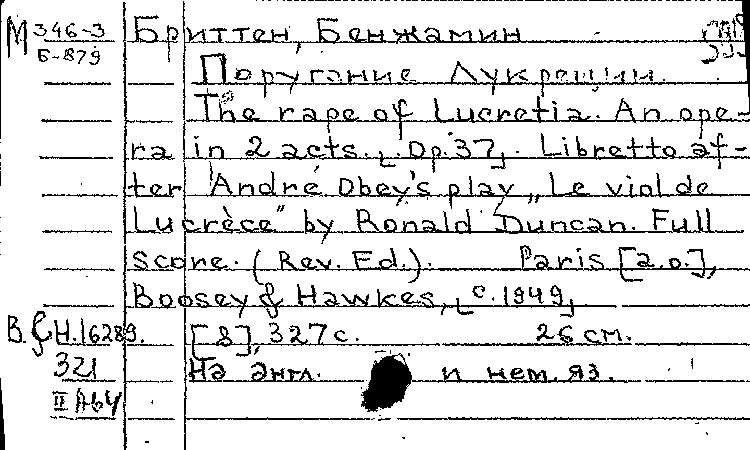 М 346-3 Бриттен, Бенжамин
Б-879
Поругание Лукреции.
The rape of Lucretia. An ope-
ra in 2 acts. Op. 37. Libretto af-
ter André Obey's play „Le viol de
Lucrèce" by Ronald Duncan. Full
score. (Rev. Ed.). Paris [a.o.],
Boosey & Hawkes, c. 1949
B. & H. 16289. [8], 327 с. 26 см.
321 На англ. и нем. яз.
II А64